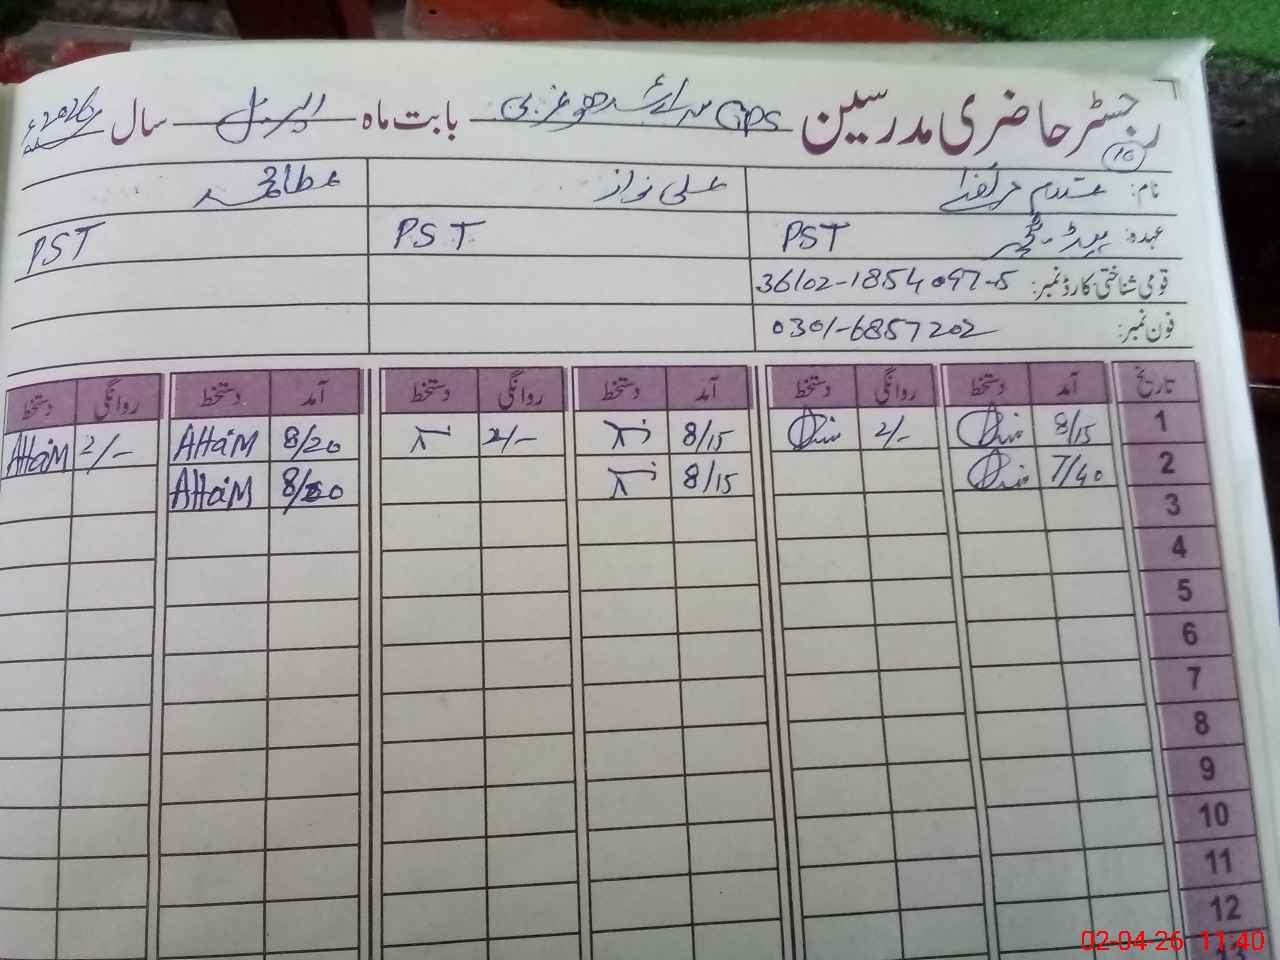 رجسٹر حاضری مدرسین GPS سدھو غربی بابت ماہ اپریل سال 2026ء
10
نام: علی نواز
عہدہ: ہیڈ ٹیچر PST PST PST
قومی شناختی کارڈ نمبر: 36102-1854097-5
فون نمبر: 0301-6857202
تاریخ آمد دستخط روانگی دستخط آمد دستخط روانگی دستخط آمد دستخط روانگی دستخط
1 8/15 2/- 8/15 2/- 8/20 AttaiM 2/- AttaiM
2 7/40 8/15 8/20 AttaiM
3
4
5
6
7
8
9
10
11
12
13
02-04-26 11:40